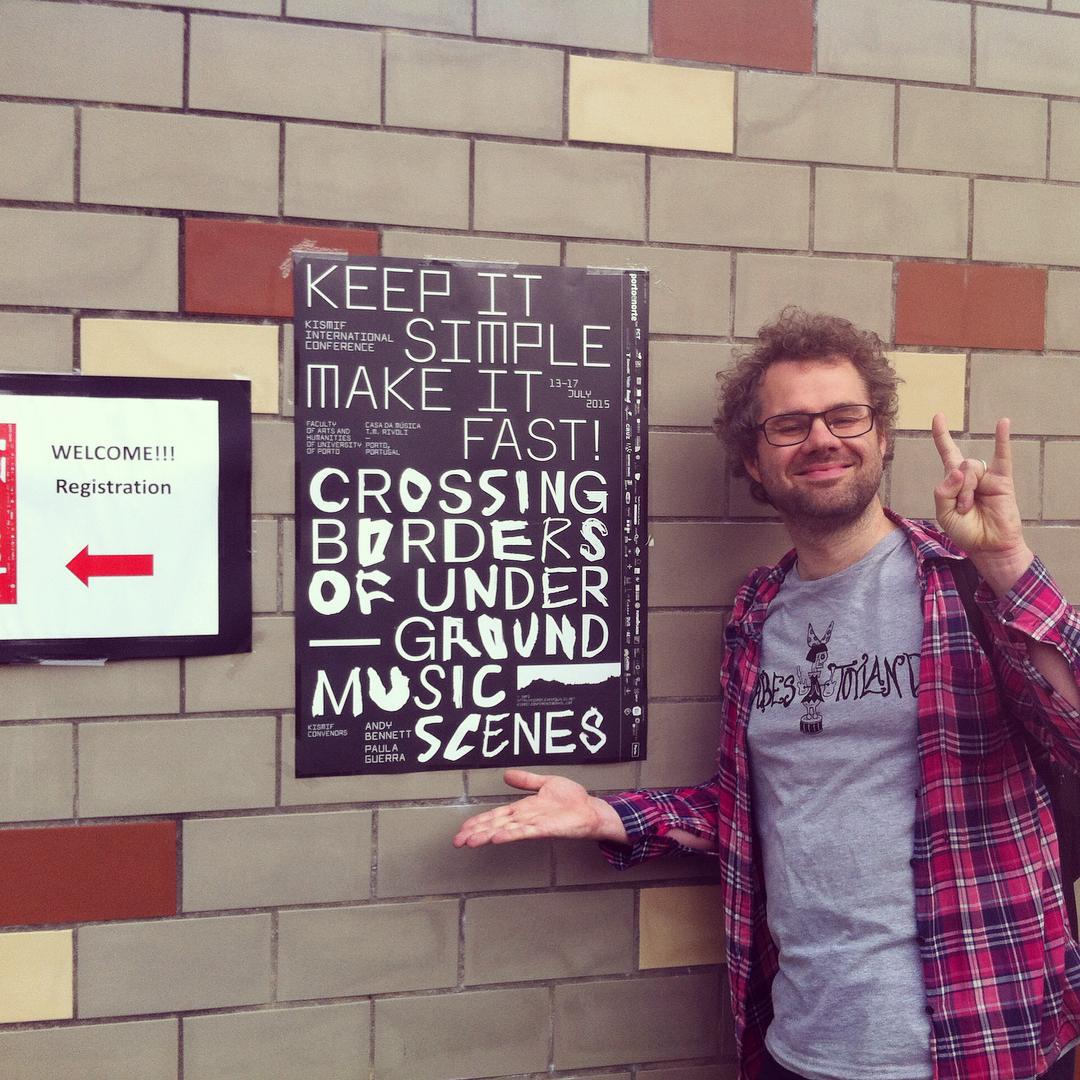 WELCOME!!!
Registration
KEEP IT
KISMIF
INTERNATIONAL
CONFERENCE
SIMPLE
MAKE IT
13-17
JULY
2015
FACULTY
OF ARTS AND
HUMANITIES
OF UNIVERSITY
OF PORTO
CASA DA MÚSICA
T.M. RIVOLI
—
PORTO,
PORTUGAL
FAST!
CROSSING
BORDERS
OF UNDER
— GROUND
MUSIC
SCENES
KISMIF
CONVENORS
ANDY
BENNETT
PAULA
GUERRA
portoenorte
TOYLAND